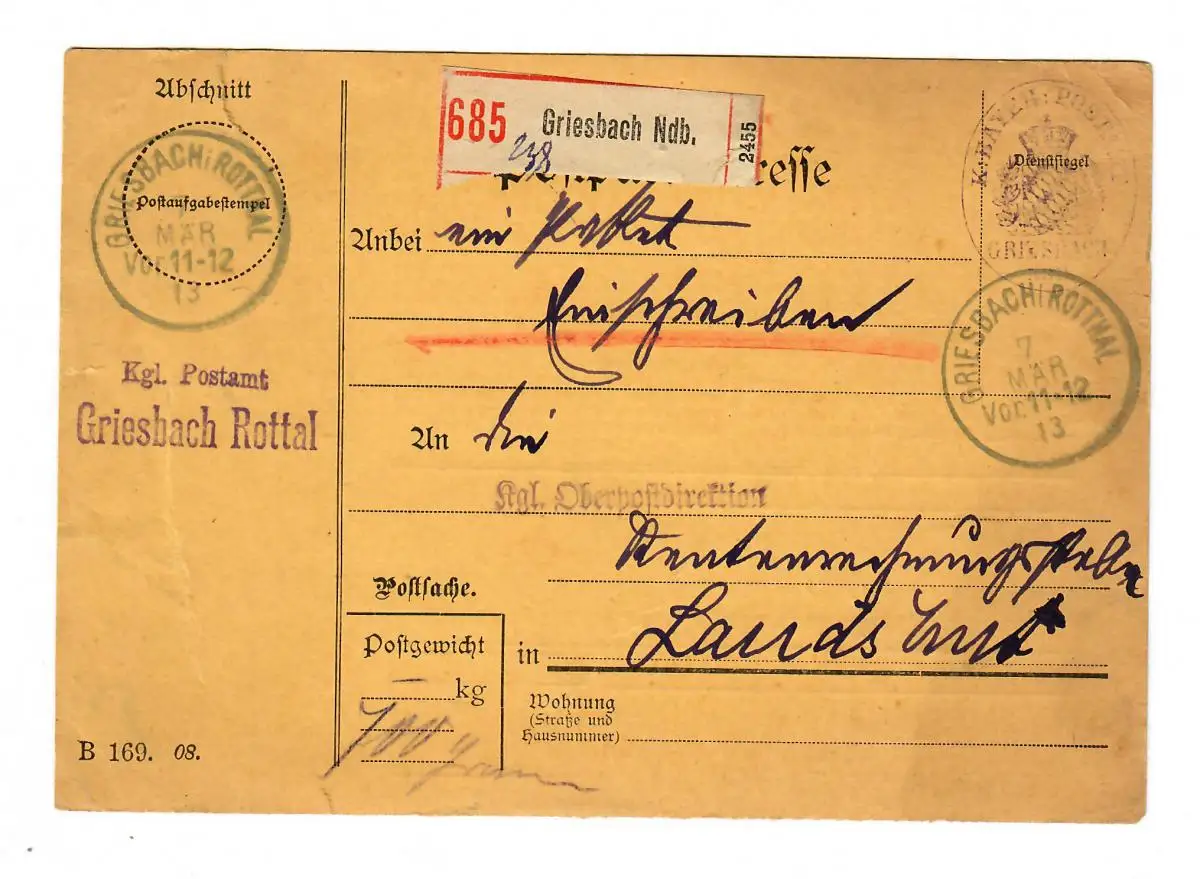 Abschnitt
GRIESBACH i ROTTAL
Postaufgabestempel
7
MÄR
Vor. 11-12
13
Kgl. Postamt
Griesbach Rottal
B 169. 08.
685 Griesbach Ndb. 2455
238
resse
K. BAYER. POST
Dienstsiegel
GRIESBACH
Anbei ein Paket
Einschreiben
GRIESBACH i ROTTHAL
7
MÄR
Vor. 11-12
13
An die
Kgl. Oberpostdirektion
Rentenrechnungsstelle
Postsache.
in Landshut
Postgewicht
kg
700 gramm
Wohnung
(Straße und
Hausnummer)